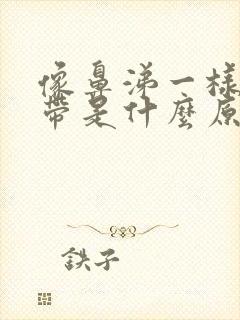 像鼻涕一樣
帶是什麼原
鉄子